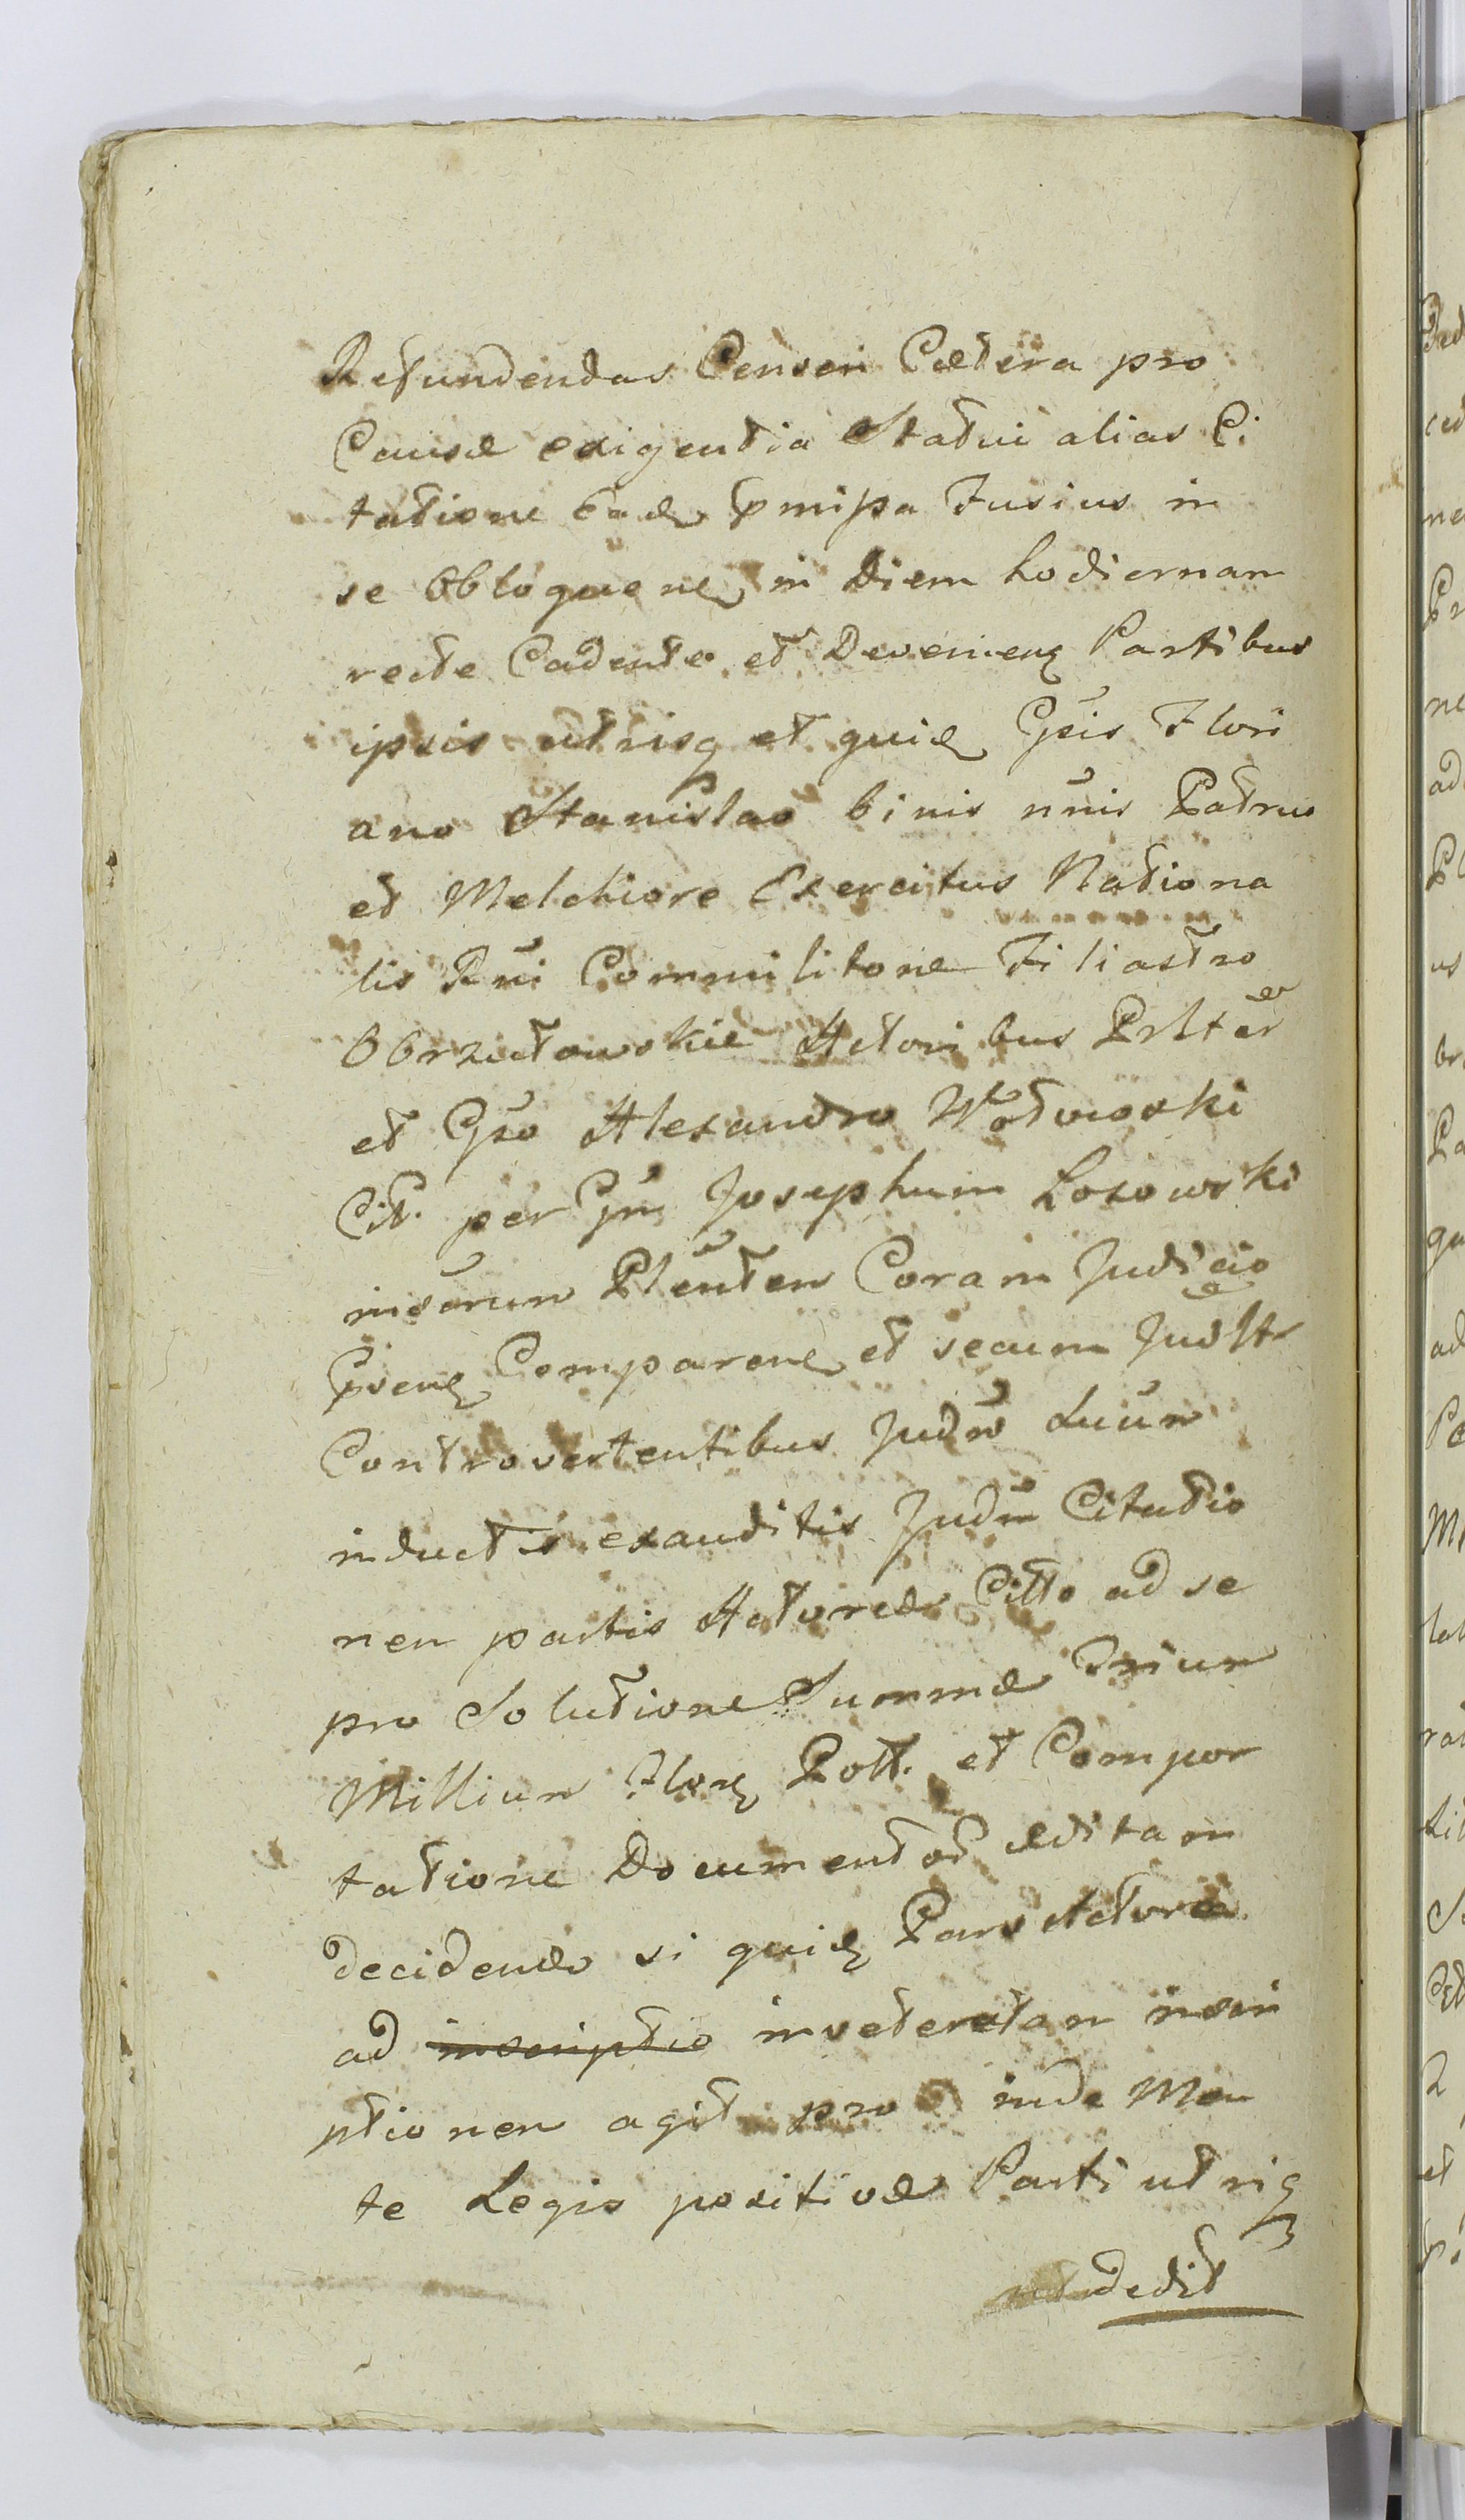 Refundendas Censeri Cætera pro
Causæ exigentia Statui alias Ci
tatione Eadē p̄missa Fusius in
se Obloquenē in Diem hodiernam
recte Cadente et Devenienē Partibus
ipsis utrisq et quidē Gsis Flori
ano Stanislao binis n̄nis Patruo
et Melchiore Exercitus Nationa
lis Rn̄i Commilitone Filiastro
Obrzutowskie Actoribus Prltēr
et Gso Alexandro Wotowski
Citt. per Gn̄ Josephum Losowski
insorum Plēnten Coram Judicio
p̄senē Comparenē et secum Judltr
Controvertentibus Judm̄ Luūm
inductis exauditis Judm̄ Citatio
nem partis Actoreæ Citto ad se
pro Solutione Summæ Trium
Millium Flore Poll. et Compor
tatione Documentor æditam
decidendo si quidē Pars Actorea
ad inscriptio inveteratam inscri
ptionem agit pro inde Men
te Legis positivæ Parti utriq
dedit